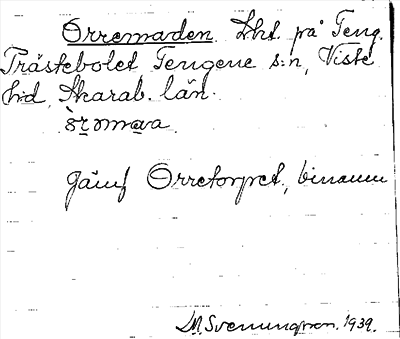 Orremaden. Lht. på Teng.
Trästebolet Tengene s:n, Viste
hd, Skarab. län.
òromaa
jämf Orretorpet, binamn
M. Svenningson. 1939.